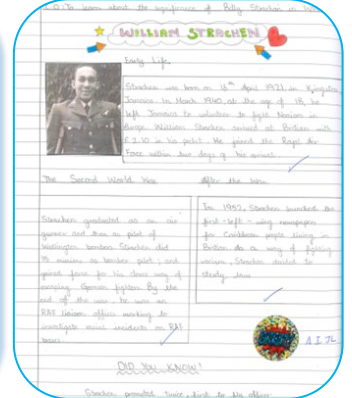 L.O: To learn about the significance of Billy Strachan in
WILLIAM STRACHEN
Early Life
Strachan was born on 16th April 1921, in Kingston,
Jamaica. In March 1940, at the age of 18, he
left Jamaica to volunteer to fight Nazism in
Europe. William Strachan arrived at Britain with
£2.10 in his pocket. He joined the Royal Air
Force within two days of his arrival.
The Second World War
Strachan graduated as an air
gunner and then as pilot of
Wellington bombers. Strachan did
15 missions as bomber pilot; and
gained fame for his daring way of
escaping German fighters. By the
end of the war, he was an
RAF liaison officer working to
investigate racial incidents on RAF
bases.
After the War
In 1952, Strachan launched the
first-left-wing newspaper
for Caribbean people living in
Britain. As a way of fighting
racism, Strachan decided to
study law
DID YOU KNOW?
Strachan promoted twice, first to
officer